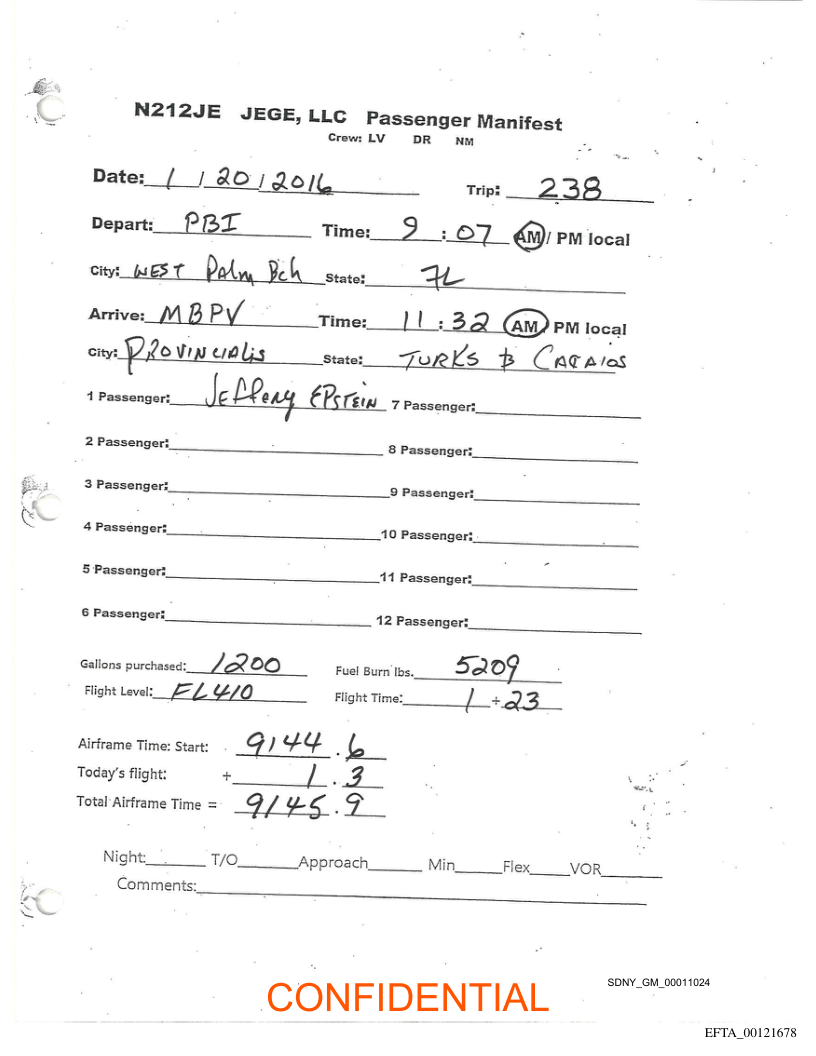 N212JE JEGE, LLC Passenger Manifest
Crew: LV DR NM
Date: 1 / 20 / 2016 Trip: 238
Depart: PBI Time: 9 : 07 AM / PM local
City: WEST Palm Bch State: FL
Arrive: MBPV Time: 11 : 32 AM PM local
City: PROVINCIALIS State: TURKS & CACAIOS
1 Passenger: JEffeny EPSTEIN 7 Passenger:
2 Passenger: 8 Passenger:
3 Passenger: 9 Passenger:
4 Passenger: 10 Passenger:
5 Passenger: 11 Passenger:
6 Passenger: 12 Passenger:
Gallons purchased: 1200 Fuel Burn lbs. 5209
Flight Level: FL410 Flight Time: 1 + 23
Airframe Time: Start: 9144 . 6
Today's flight: + 1 . 3
Total Airframe Time = 9145 . 9
Night: T/O Approach Min Flex VOR
Comments:
SDNY_GM_00011024
CONFIDENTIAL
EFTA_00121678